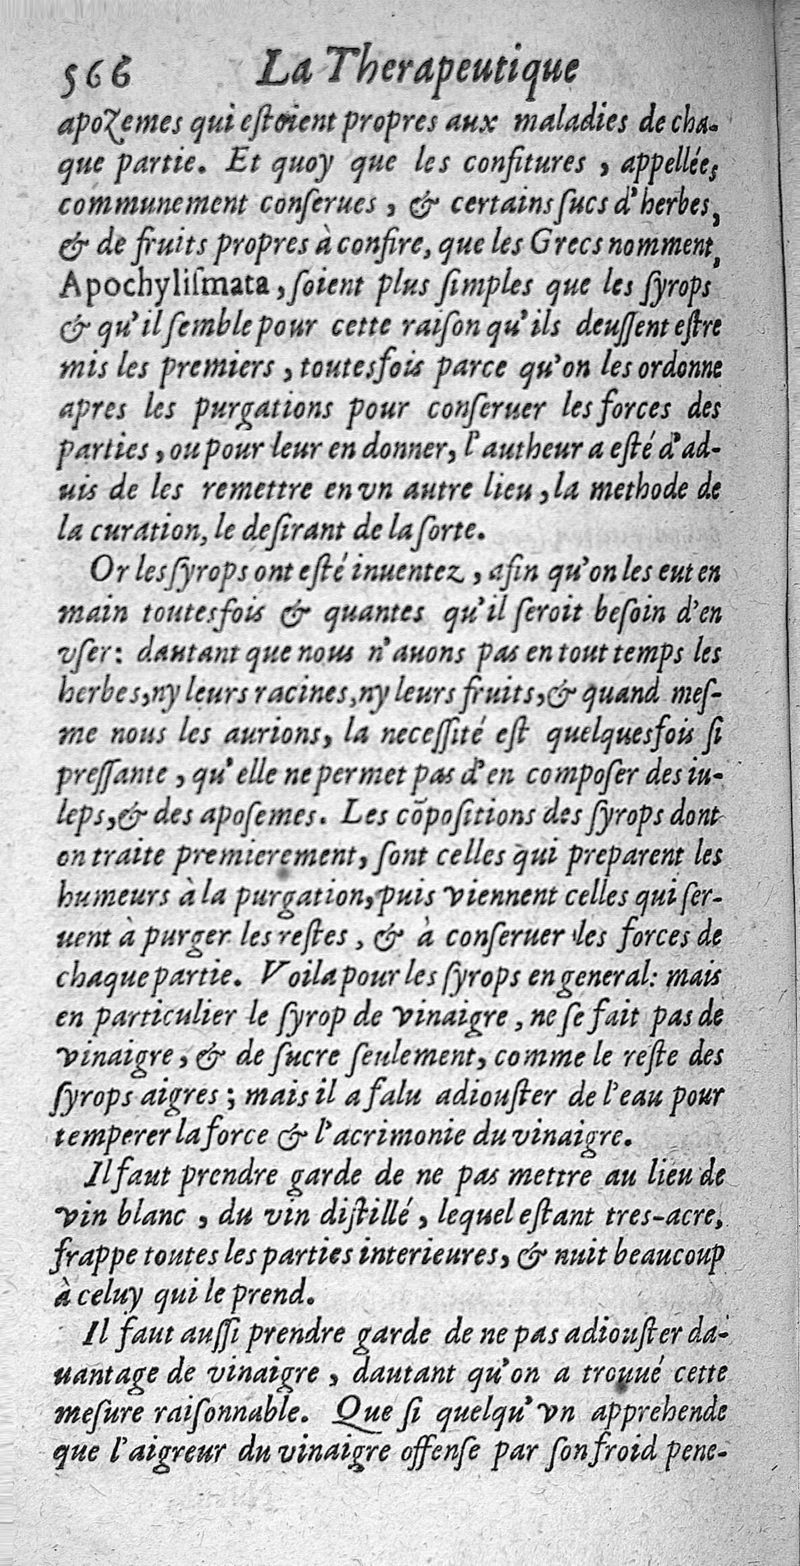 566 La Therapeutique
apoZemes qui eſtoient propres aux maladies de cha-
que partie. Et quoy que les confitures, appellées
communement conſerues, & certains ſucs d'herbes,
& de fruits propres à confire, que les Grecs nomment,
Apochyliſmata, ſoient plus ſimples que les ſyrops
& qu'il ſemble pour cette raiſon qu'ils deuſſent eſtre
mis les premiers, toutesfois parce qu'on les ordonne
apres les purgations pour conſeruer les forces des
parties, ou pour leur en donner, l'autheur a eſté d'ad-
uis de les remettre en vn autre lieu, la methode de
la curation, le deſirant de la ſorte.
Or les ſyrops ont eſté inuentez, afin qu'on les eut en
main toutesfois & quantes qu'il ſeroit beſoin d'en
vſer: dautant que nous n'auons pas en tout temps les
herbes, ny leurs racines, ny leurs fruits, & quand meſ-
me nous les aurions, la neceſſité eſt quelquesfois ſi
preſſante, qu'elle ne permet pas d'en compoſer des iu-
leps, & des apoſemes. Les cõpoſitions des ſyrops dont
on traite premierement, ſont celles qui preparent les
humeurs à la purgation, puis viennent celles qui ſer-
uent à purger les reſtes, & à conſeruer les forces de
chaque partie. Voila pour les ſyrops en general: mais
en particulier le ſyrop de vinaigre, ne ſe fait pas de
vinaigre, & de ſucre ſeulement, comme le reſte des
ſyrops aigres; mais il a falu adiouſter de l'eau pour
temperer la force & l'acrimonie du vinaigre.
Il faut prendre garde de ne pas mettre au lieu de
vin blanc, du vin diſtillé, lequel eſtant tres-acre,
frappe toutes les parties interieures, & nuit beaucoup
à celuy qui le prend.
Il faut auſſi prendre garde de ne pas adiouſter da-
uantage de vinaigre, dautant qu'on a trouué cette
meſure raiſonnable. Que ſi quelqu'vn apprehende
que l'aigreur du vinaigre offenſe par ſon froid pene-